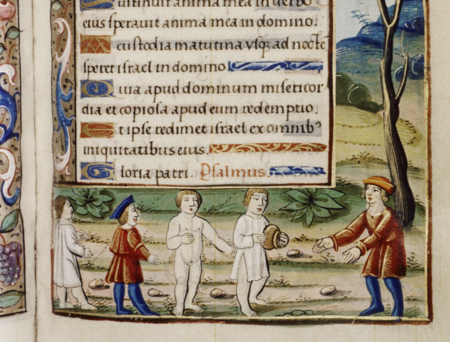 Sustinuit anima mea in verbo
eius speravit anima mea in domino.
A custodia matutina usqꝫ ad noctē
speret israel in domino
Quia apud dominum misericor
dia et copiosa apud eum redemptio.
Et ipse redimet israel ex omnibꝰ
iniquitatibus eius.
Gloria patri. Psalmus.